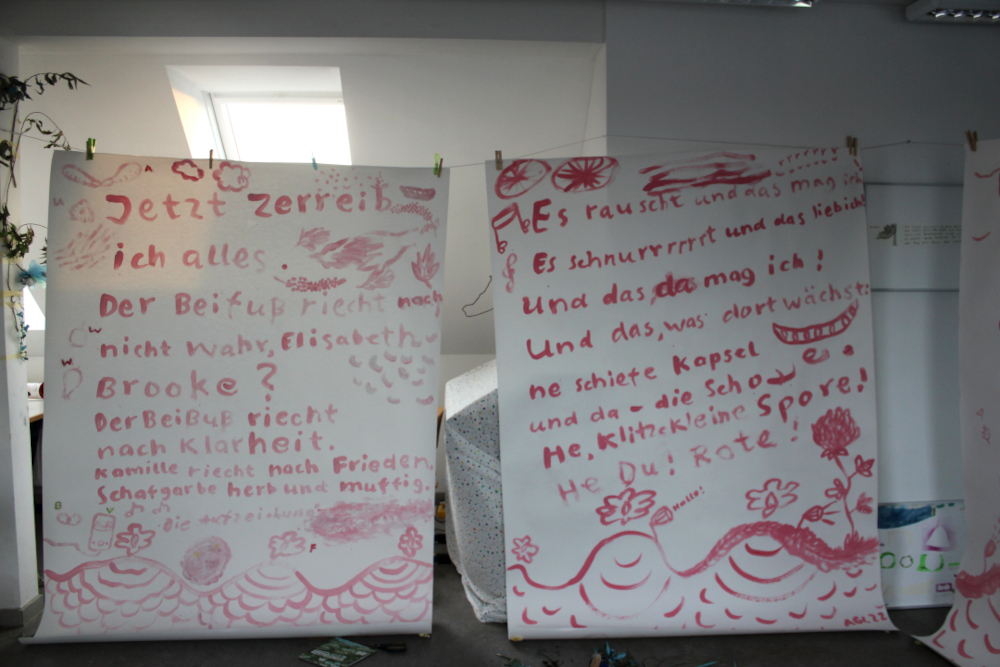 Jetzt zerreib
ich alles.
Der Beifuß riecht nach
nicht wahr, Elisabeth
Brooke?
Der Beißuß riecht
nach Klarheit.
Kamille riecht nach Frieden.
Schafgarbe herb und muffig.
Es rauscht und das mag ich
Es schnurrrrrst und das liebich
Und das da mag ich!
Und das, was dort wächst:
ne schiefe Kapsel
und da - die Scho
He, klitzekleine Spore!
He Du! Rote!
Hallo!